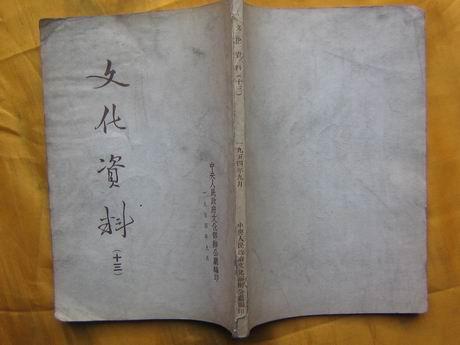 文化資料
(十三)
中央人民政府文化部辦公廳編印
一九五四年九月
文化資料(十三)
一九五四年九月
中央人民政府文化部辦公廳編印